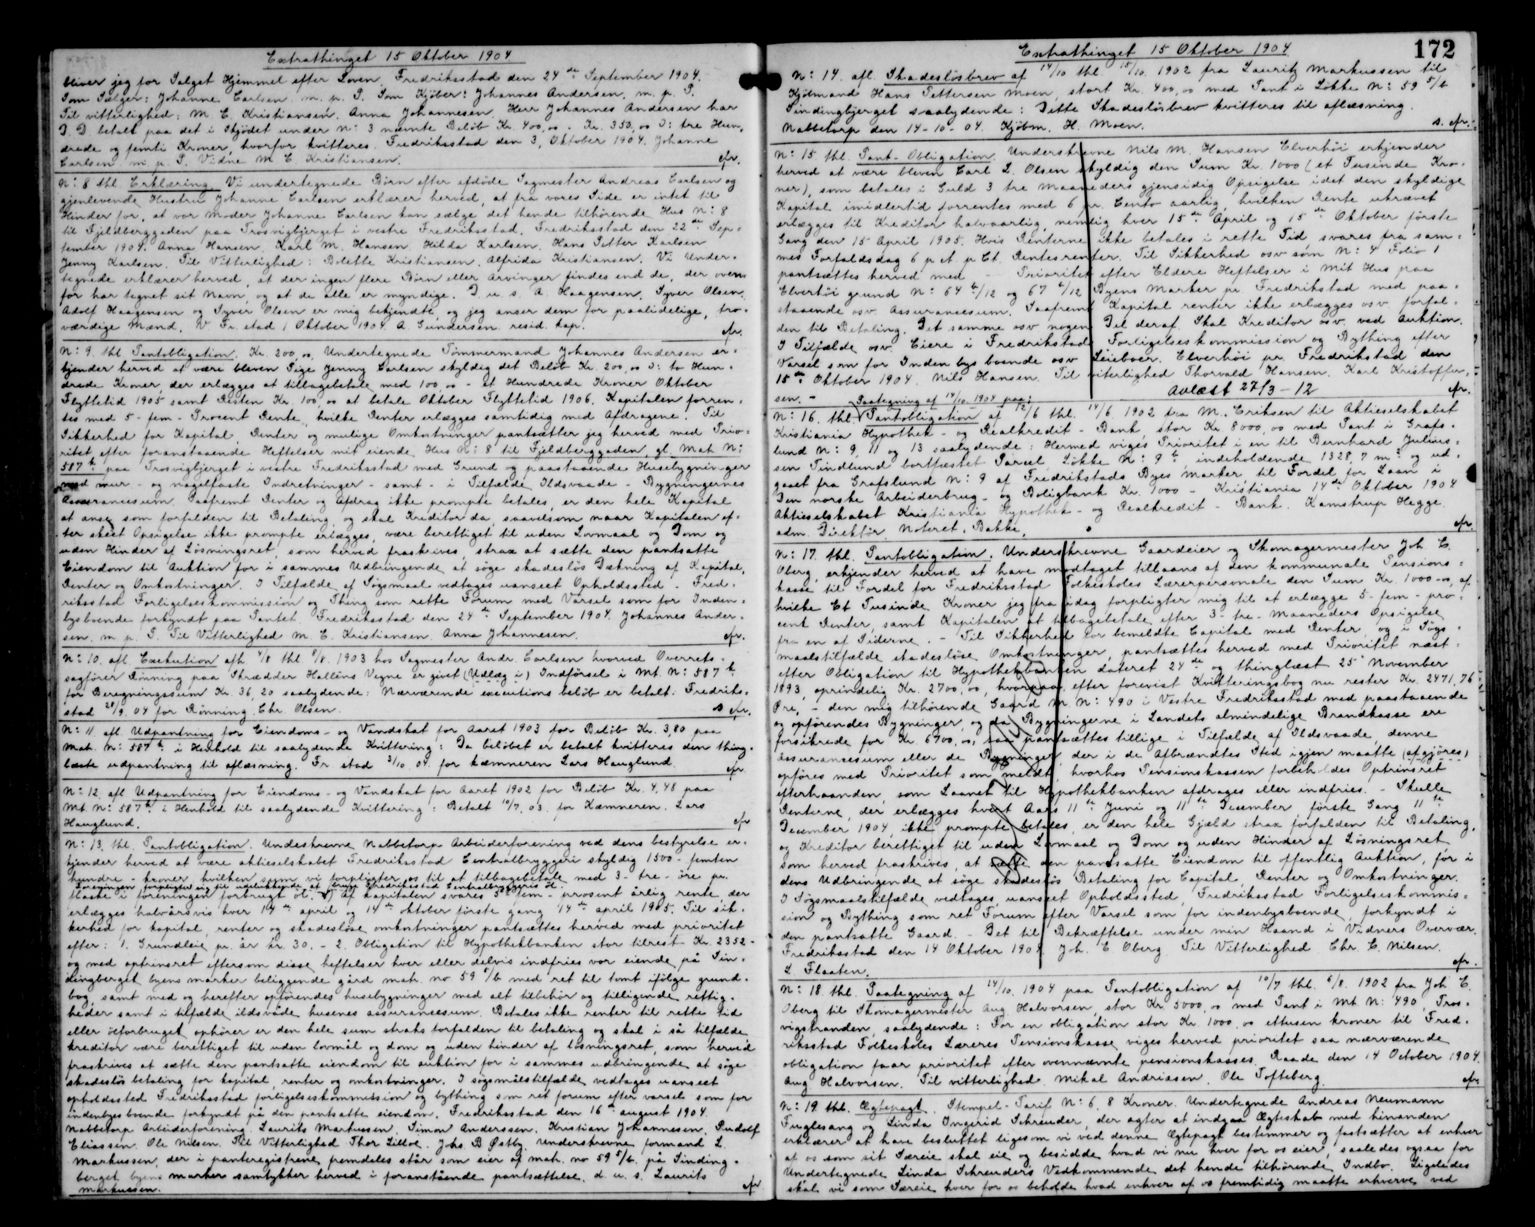 Extrathinget 15 Oktober 1904
bliver jeg for Salget Hjemmel efter Loven. Fredriksstad den 24de September 1904.
Som Sælger: Johanne Carlsen m. p. P. Som Kjøber: Johannes Andersen, m. p. P.
Til vitterlighed: M. C. Kristiansen. Anna Johannesen. Herr Johannes Andersen har
D. D. betalt paa det i Skjødet under N: 3 nævnte Beløb Kr. 400,00 - Kr. 350,00 D: tre Hun-
drede og femti Kroner, hvorfor kvitteres. Fredriksstad den 3, Oktober 1904. Johanne
Carlsen m. p. P. Vidne M. C. Kristiansen. cfr.
N: 8 thl. Erklæring. Vi undertegnede Børn efter afdøde Sagmester Andreas Carlsen og
gjenlevende Hustru Johanne Carlsen erklærer herved, at fra vores Side er intet til
Hinder for, at vor Moder Johanne Carlsen kan sælge det hende tilhørende Hus N: 8
til Fjeldberggaden paa Trosvigbjerget i vestre Fredriksstad. Fredriksstad den 22de Sep-
tember 1904. Anna Hansen. Karl M. Hansen. Hilda Karlsen. Hans Petter Karlsen
Jenny Karlsen. Til Vitterlighed: Bolette Kristiansen. Alfrida Kristiansen. Vi Under-
tegnede erklærer herved, at der ingen flere Børn eller Arvinger findes end de, der oven-
for har tegnet sit Navn, og at de alle er myndige. D. u. s. A. Haagensen. Syver Olsen.
Adolf Haagensen og Syver Olsen er mig bekjendte, og jeg anser dem for paalidelige, tro-
værdige Mænd. V. Fr.stad 1 Oktober 1904. A. Gundersen. resid. kap. cfr.
N: 9. thl. Pantobligation. Kr. 200,00. Undertegnede Tømmermand Johannes Andersen er-
kjender herved at være bleven Pige Jenny Carlsen skyldig det Beløb Kr. 200,00 D: to Hun-
drede Kroner, der erlægges at tilbagebetale med 100,00 - et Hundrede Kroner Oktober
Flyttetid 1905 samt Resten Kr. 100,00 at betale Oktober Flyttetid 1906. Kapitalen forren-
tes med 5 - fem - Procent Rente, hvilke Renter erlægges samtidig med Afdragene. Til
Sikkerhed for Kapital, Renter og mulige Omkostninger pantsætter jeg herved med Prio-
ritet efter foranstaaende Heftelser mit eiende Hus N: 8 til Fjeldberggaden, gl. Mat. N:
587 b paa Trosvigbjerget i vestre Fredriksstad med Grund og paastaaende Husebygninger
med mur- og nagelfaste Indretninger - samt - i Tilfælde Ildsvaade - Bygningernes
Assurancesum. Saafremt Renter og Afdrag ikke prompte betales, er den hele Kapital
at anse som forfalden til Betaling og skal Kreditor da, saavelsom naar Kapitalen ef-
ter skeet Opsigelse ikke prompte erlægges, være berettiget til uden Lovmaal og Dom og
uden Hinder af Løsningsret, som herved fraskrives, strax at sætte den pantsatte
Eiendom til Auktion for i sammes Udbringende at søge skadesløs Dækning af Kapital,
Renter og Omkostninger. I Tilfælde af Søgsmaal vedtages uanseet Opholdssted - Fred-
riksstad Forligelseskommission og Thing som rette Forum med Varsel som for Inden-
bysboende forkyndt paa Pantet. Fredriksstad den 24de September 1904. Johannes Ander-
sen. m. p. P. Til Vitterlighed M. C. Kristiansen. Anna Johannesen. cfr.
N: 10. afl. Exekution afh. 4/8 thl. 8/8. 1903 hos Sagmester Andr. Carlsen hvorved Overrets-
sagfører Rønning paa Skrædder Halléns Vegne er givet (Udlæg i) Indførsel i Mt. N: 587 b
for Beregningssum Kr. 36,20 saalydende: Nærværende executions beløb er betalt. Fredriks-
stad 28/9 04 for Rønning. Chr. Olsen. s. cfr.
N: 11. afl. Udpantning for Eiendoms- og Vandskat for Aaret 1903 for Beløb Kr. 3,80 paa
Mat. N: 587 b. i Henhold til saalydende Kvittering: Da beløbet er betalt kvitteres den thing-
læste udpantning til aflæsning. Fr.stad 3/10. 04. for kæmneren Lars Hauglund. cfr
N: 12. afl. Udpantning for Eiendoms- og Vandskat for Aaret 1902 for Beløb Kr. 4,48 paa
Mt. N: 587 b. i Henhold til saalydende Kvittering: Betalt 16/7. 03. for Kæmneren. Lars
Hauglund. cfr
N: 13. thl. Pantobligation. Undeskrevne Nabbetorp Arbeiderforening ved dens bestyrelse er-
kjender herved at være aktieselskabet Fredriksstad Centralbryggeri skyldig 1500 - femten
hundre - kroner hvilken sum vi forpligter os til at tilbagebetale med 3 - tre - øre pr.
Foreningen forpligter sig til udelukkende at bruge Fredriksstad Centralbryggeris øl
flaske i foreningen forbrugt øl. - Af kapitalen svares 5 - fem - procent årlig rente, der
erlægges halvårsvis hver 14de april og 14de oktober første gang 14de april 1905. Til sik-
kerhed for kapital, renter og skadesløse omkostninger pantsættes herved med prioritet
efter: 1. Grundleie pr. år kr. 30. - 2. Obligation til Hypothekbanken stor tilrest Kr. 2352 -
og med optrinsret eftersom disse heftelser hver eller delvis indfries vor eiende på Sin-
dingberget byens marker beliggende gård mat. no 59 5/6 med ret til tomt ifølge grund-
bog, samt med og herefter opførendes husebygninger med alt tilbehør og tilliggende rettig-
heder samt i tilfælde ildsvåde husenes assurancesum. Betales ikke renter til rette tid
eller ølforbruget ophører er den hele sum straks forfalden til betaling og skal i så tilfælde
kreditor være berettiget til uden lovmål og dom og uden hinder af løsningsret, som herved
fraskrives at sætte den pantsatte eiendom til auktion for i sammes udbringende at søge
skadesløs betaling for kapital, renter og omkostninger. I søgsmålstilfælde vedtages uanseet
opholdssted Fredriksstad forligelseskommission og bything som ret forum efter varsel som for
indenbysboende forkyndt på den pantsatte eiendom. Fredriksstad den 16de august 1904.
Nabbetorp Arbeiderforening. Laurits Markussen. Simon Anderssen. Kristian Johannesen. Rudolf
Eliassen. Ole Nilsen. Til Vitterlighed Thor Lilloe. Johs B Østby. Underskrevne formand L.
Markussen, der i panteregistrene fremdeles står som eier af mat. no 59 5/6. på Sinding-
berget byens marker samtykker herved i foranstående pantsættelse. d. u. s. Laurits
Markussen. cfr
Extrathinget 15 Oktober 1904
172
N: 14. afl. Skadesløsbrev af 14/10 thl. 15/10. 1902 fra Laurits Markussen til
Kjøbmand Hans Pettersen Moen, stort Kr. 400,00 med Pant i Løkke N: 59 5/6
Sindingbjerget saalydende: Dette Skadesløsbrev kvitteres til aflæsning.
Nabbetorp den 14-10-04. Kjøbm. H. Moen. s. cfr.
N: 15 thl. Pant-Obligation. Underskrevne Nils M. Hansen Elverhøi erkjender
herved at være bleven Carl L. Olsen skyldig den Sum Kr. 1000 (et Tusinde Kro-
ner), som betales i Guld 3 tre Maaneders gjensidig Opsigelse idet den skyldige
Kapital imidlertid forrentes med 6 pr. Cento aarlig, hvilken Rente ukrævet
erlægges til Kreditor halvaarlig, nemlig hver 15de April og 15de Oktober første
Gang den 15 April 1905. Hvis Renterne ikke betales i rette Tid svares fra sam-
mes Forfaldsdag 6 p ct. p. Ct. Rentesrenter. Til Sikkerhed osv som N: 4 Folio 1
pantsættes herved med - Prioritet efter Eldere Heftelser i Mit Hus paa
Elverhøi grund N: 64 b/12 og 67 b/12 Byens Marker pr Fredrikstad med paa-
staaende osv. Assurancesum. Saafremt Kapital renter ikke erlægges osv forfal-
den til Betaling. Det samme osv nogen Del deraf. Skal Kreditor osv. ved Auktion.
I Tilfælde osv. Eiere i Fredrikstad Forligelseskommission og Bything efter
Varsel som for Inden bys boende osv Leieboer. Elverhøi pr. Fredrikstad den
15de Oktober 1904. Nils Hansen. Til viterlighed Thorvald Hansen. Karl Kristoffer-
sen. - Avlæst 27/3-12 cfr.
Paategning af 14/10. 1904 paa:
N: 16. thl. Pantobligation af 12/6 thl. 14/6 1902 fra M. Eriksen til Aktieselskabet
Kristiania Hypothek- og Realkredit-Bank stor Kr. 8000,00 med Pant i Grafs-
lund N: 9, 11 og 13 saalydende: Hermed viges Prioritet i en til Bernhard Julius-
sen Tindlund bortfæstet Parcel Løkke N: 9 b indeholdende 1328,7 m² og ud-
gaaet fra Grafslund N: 9 af Fredrikstads Byes Marker til Fordel for Laan i
Den norske Arbeiderbrug- og Boligbank Kr. 1000 - Kristiania 14de Oktober 1904
Aktieselskabet Kristiania Hypothek- og Realkredit-Bank. Kamstrup Hegge
adm. Direktør Noteret. Bakke. cfr.
N: 17. thl. Pantobligation. Underskrevne Gaardeier og Skomagermester Joh. C.
Oberg, erkjender herved at have modtaget tillaans af den kommunale Pensions-
kasse til Fordel for Fredriksstad Folkeskoles Lærerpersonale den Sum Kr. 1000-00, af
hvilke Et Tusinde Kroner jeg fra idag forpligter mig til at erlægge 5 - fem - pro-
cent Renter, samt Kapitalen at tilbagebetale efter 3 - tre - Maaneders Opsigelse
fra en af Siderne. - Til Sikkerhed for bemeldte Capital med Renter og i Søgs-
maalstilfælde skadesløse Omkostninger, pantsættes herved med Prioritet næst-
efter Obligation til Hypothekbanken dateret 24de og thinglæst 25de November
1893, oprindelig Kr. 2700,00, hvorpaa efter forevist Kvitteringsbog nu rester Kr. 2471,76
Øre, - den mig tilhørende Gaard Mt N: 490 i Vestre Fredriksstad med paastaaende
og opførendes Bygninger og da Bygningerne i Landets almindelige Brandkasse ere
forsikrede for Kr. 6700,00, saa pantsættes tillige i Tilfælde af Ildsvaade, denne
Assurancesum eller de Bygninger der i de Afbrændtes Sted igjen maatte (afgjøres)
opføres med Prioritet som meldt, hvorhos Pensionskassen forbeholdes Optrinsret
efterhaanden, som Laanet til Hypothekbanken afdrages eller indfries. - Skulle
Renterne, der erlægges hvert Aars 11te Juni og 11te December første Gang 11te
December 1904, ikke prompte betales, er den hele Gjæld strax forfalden til Betaling,
og Kreditor berettiget til uden Lovmaal og Dom og uden Hinder af Løsningsret
som herved fraskrives, at sætte den pantsatte Eiendom til offentlig Auktion, for i
dens Udbringende at søge skadesløs Betaling for Capital, Renter og Omkostninger.
I Søgsmaalstilfælde vedtages, uanseet Opholdssted, Fredriksstad Forligelseskommis-
sion og Bything som ret Forum efter Varsel som for indenbysboende, forkyndt i
den pantsatte Gaard. - Det til Bekræftelse under min Haand i Vidners Overvær.
Fredriksstad den 14 Oktober 1904. Joh. C. Oberg. Til Vitterlighed Chr. C. Nilsen.
L. Flaaten. cfr.
N: 18. thl. Paategning af 14/10. 1904 paa Pantobligation af 10/7 thl. 8/8. 1902 fra Joh. C.
Oberg til Skomagermester Aug. Halvorsen, stor Kr. 5000,00 med Pant i Mt. N: 490, Tros-
vigstranden, saalydende: For en obligation stor Kr. 1000,00 ettusen kroner til Fred-
riksstad Folkeskoles Læreres Pensionskasse, viges herved prioritet saa nærværende
obligation faar prioritet efter ovennævnte pensionskasses. Raade den 14 October 1904.
Aug Halvorsen. Til vitterlighed. Mikal Andriasen. Ole Tofteberg. cfr.
N: 19 thl. Ægtepagt. Stempel-Tarif N: 6. 8 Kroner. Undertegnede Andreas Neumann
Fuglesang og Linda Ingerid Schreuder, der agter at indgaa Ægteskab med hinanden
erklærer at have besluttet ligesom vi ved denne Ægtepagt bestemmer og fastsætter at enhver
af os som sit Særeie skal eie og besidde hvad vi nu hver for os eier, saaledes ogsaa for
Undertegnede Linda Schreuders Vedkommende det hende tilhørende Indbo. Ligeledes
skal vi som Særeie hver for os beholde hvad enhver af os fremtidig maatte erhverve ved